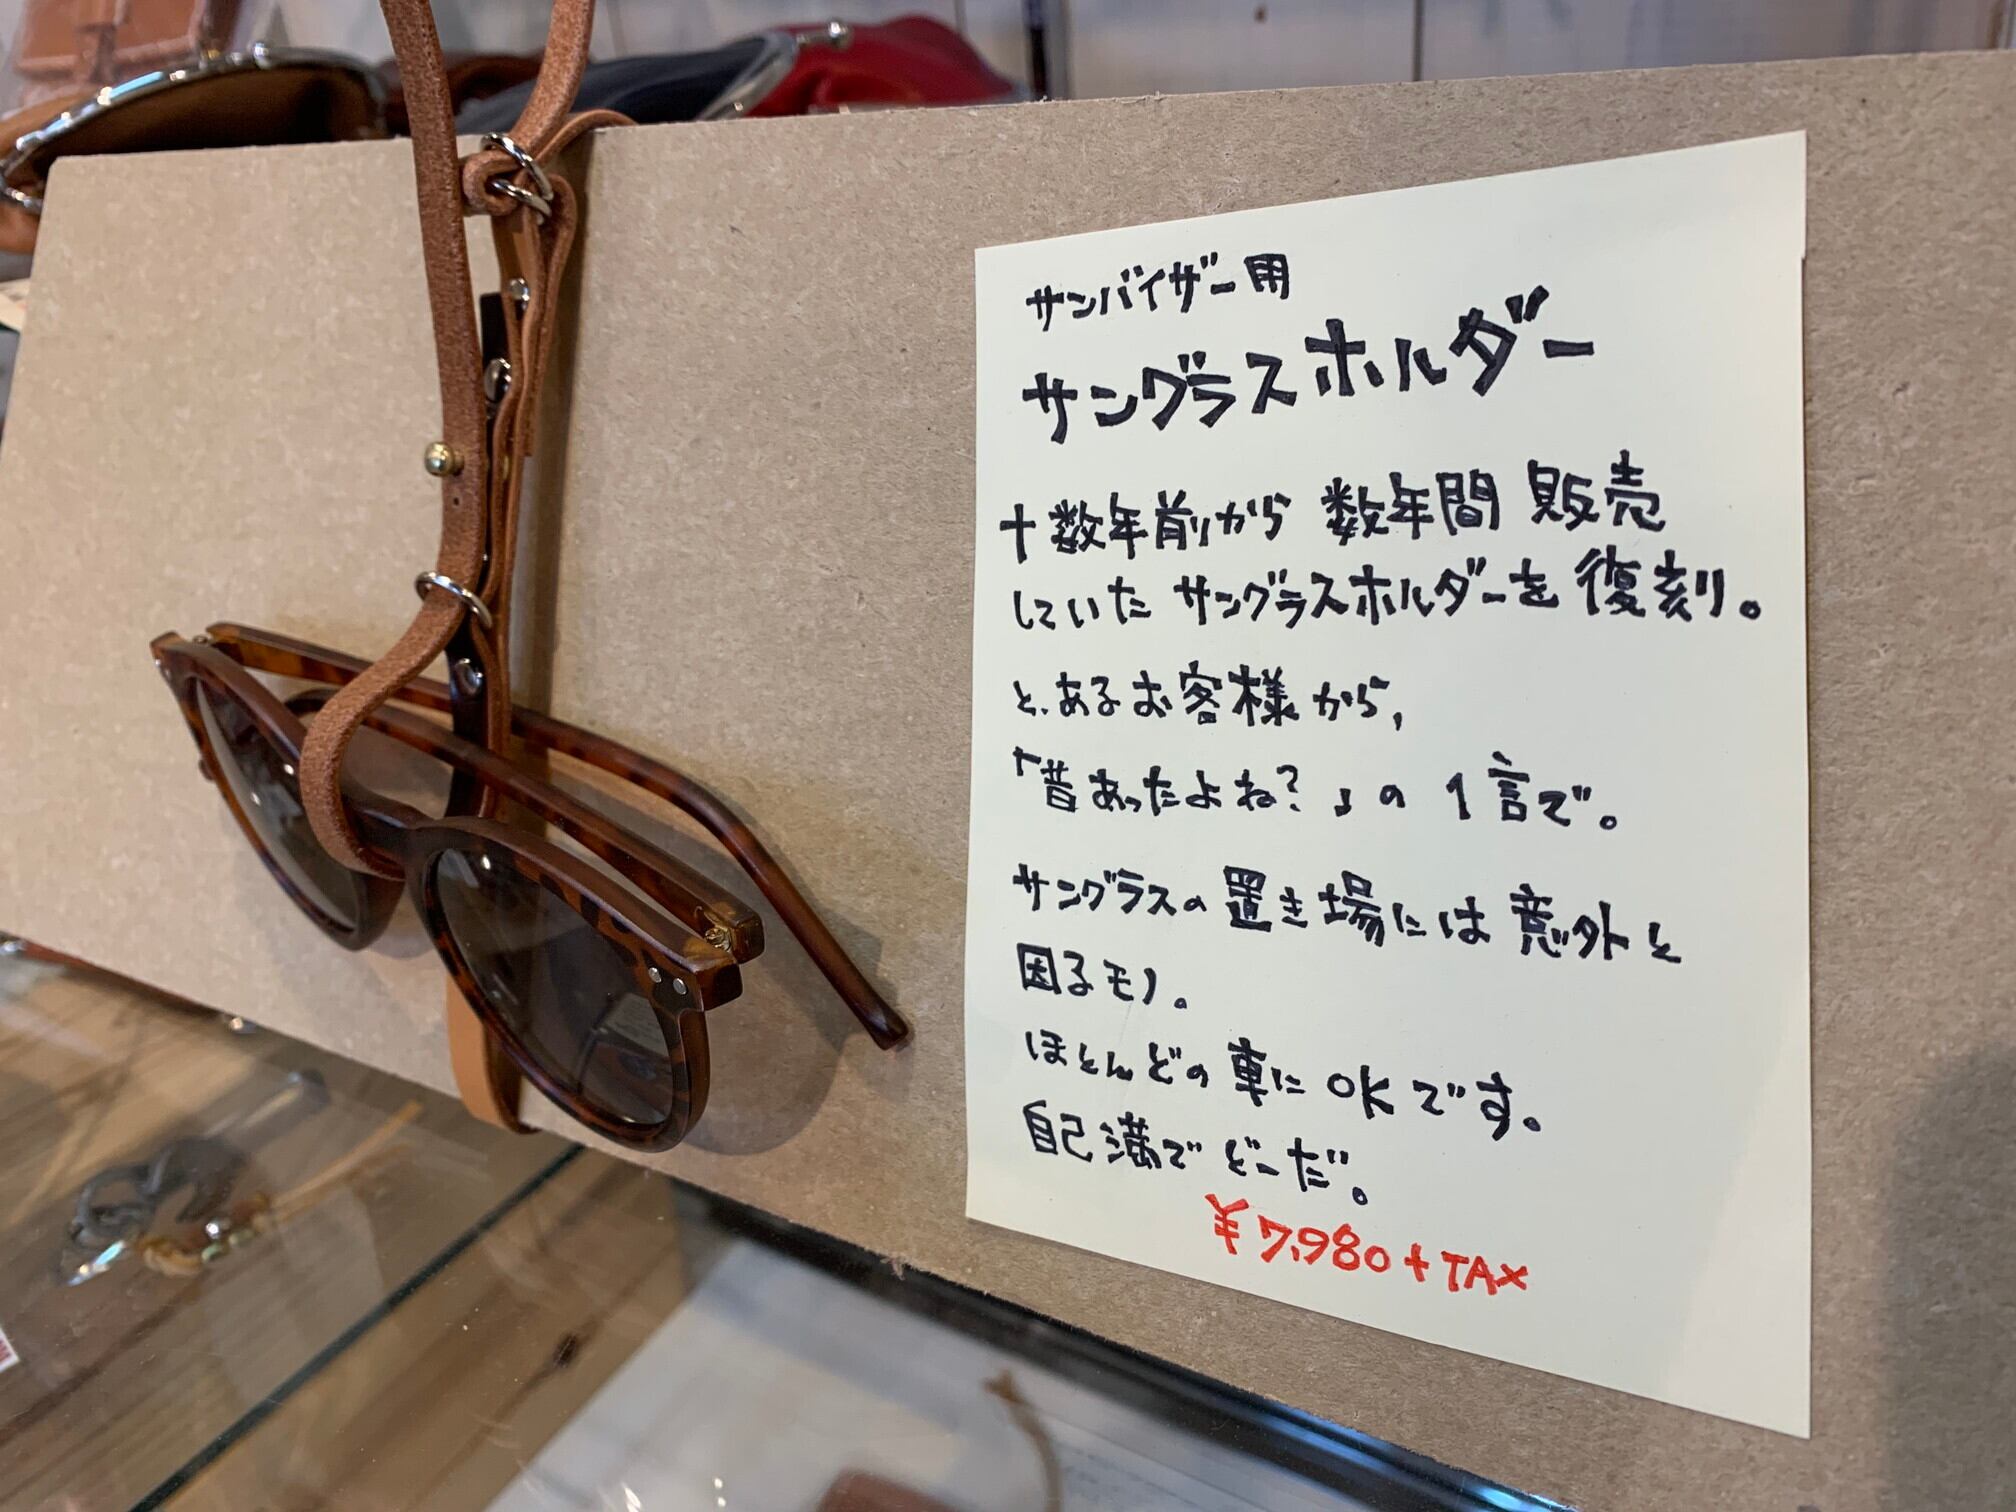 サンバイザー用
サングラスホルダー
十数年前から 数年間 販売
していた サングラスホルダーを 復刻。
と、あるお客様から、
「昔あったよね?」の 1言で。
サングラスの 置き場には 意外と
困るモノ。
ほとんどの 車に OKです。
自己満で どーだ。
¥7,980+TAX